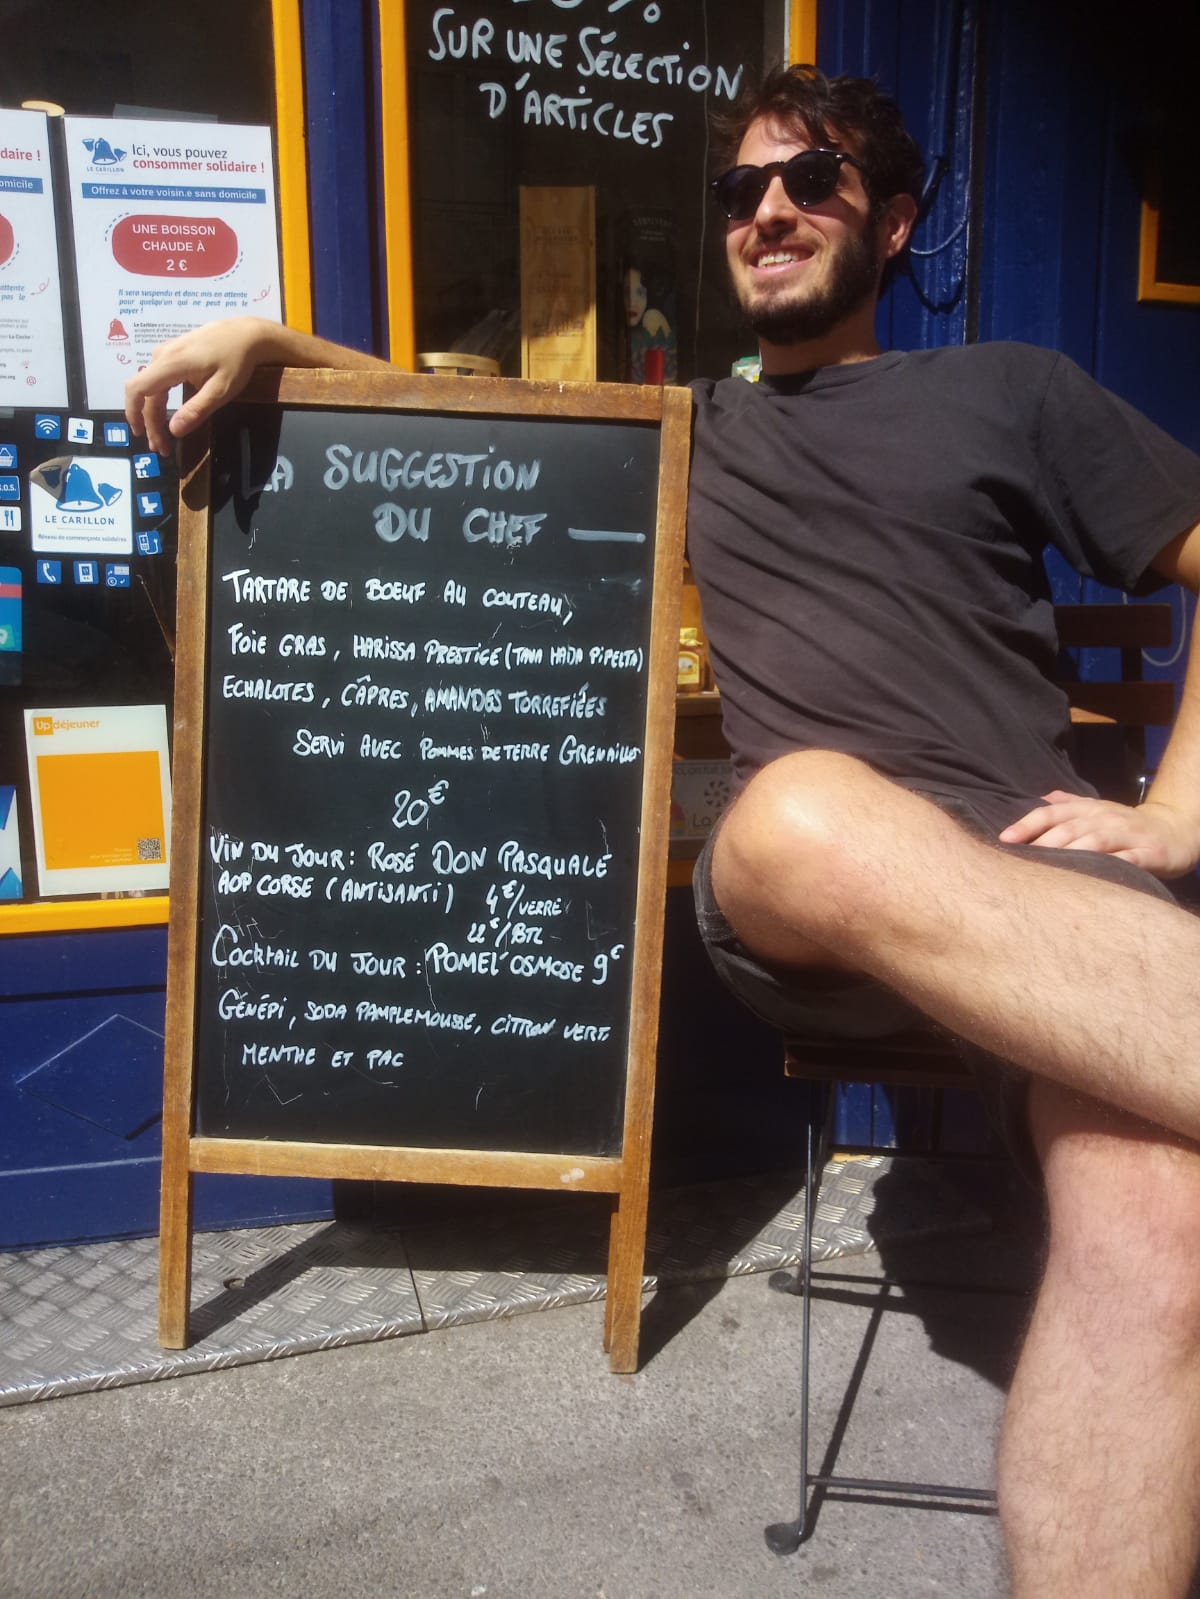 SUR UNE SÉLECTION
D'ARTICLES
daire !
omicile
LE CARILLON
Ici, vous pouvez
consommer solidaire !
Offrez à votre voisin.e sans domicile
UNE BOISSON
CHAUDE À
2 €
Il sera suspendu et donc mis en attente
pour quelqu'un qui ne peut pas le
payer !
LE CARILLON
Réseau de commerçants solidaires
S.O.S.
Up déjeuner
LA SUGGESTION
DU CHEF
TARTARE DE BOEUF AU COUTEAU,
FOIE GRAS, HARISSA PRESTIGE (TAVA HADA PIPELTA)
ECHALOTES, CÂPRES, AMANDES TORREFIÉES
SERVI AVEC POMMES DE TERRE GRENAILLES
20€
VIN DU JOUR : ROSÉ DON PASQUALE
AOP CORSE (ANTISANTI) 4€/VERRE
22€/BTL
COCKTAIL DU JOUR : POMEL'OSMOSE 9€
GÉNÉPI, SODA PAMPLEMOUSSE, CITRON VERT,
MENTHE ET PAC